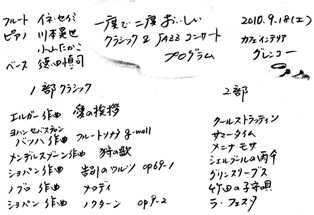 フルート イネ・セイミ
ピアノ 川本英也
小山たかこ
ベース 徳田慎司
一度で二度おいしい
クラシック & JAZZ コンサート
プログラム
2010.9.18(土)
カフェ インテリア
グレンコー
1部 クラシック
エルガー作曲 愛の挨拶
ヨハン セバスティアン
バッハ作曲 フルートソナタ g-moll
メンデルスゾーン作曲 狩の歌
ショパン作曲 告別のワルツ op69-1
ノブロ作曲 メロディ
ショパン作曲 ノクターン op9-2
2部
クールストラッティン
サマータイム
メニナ モサ
シェルブールの雨傘
グリンスリーブス
竹田の子守唄
ラ・フェスタ